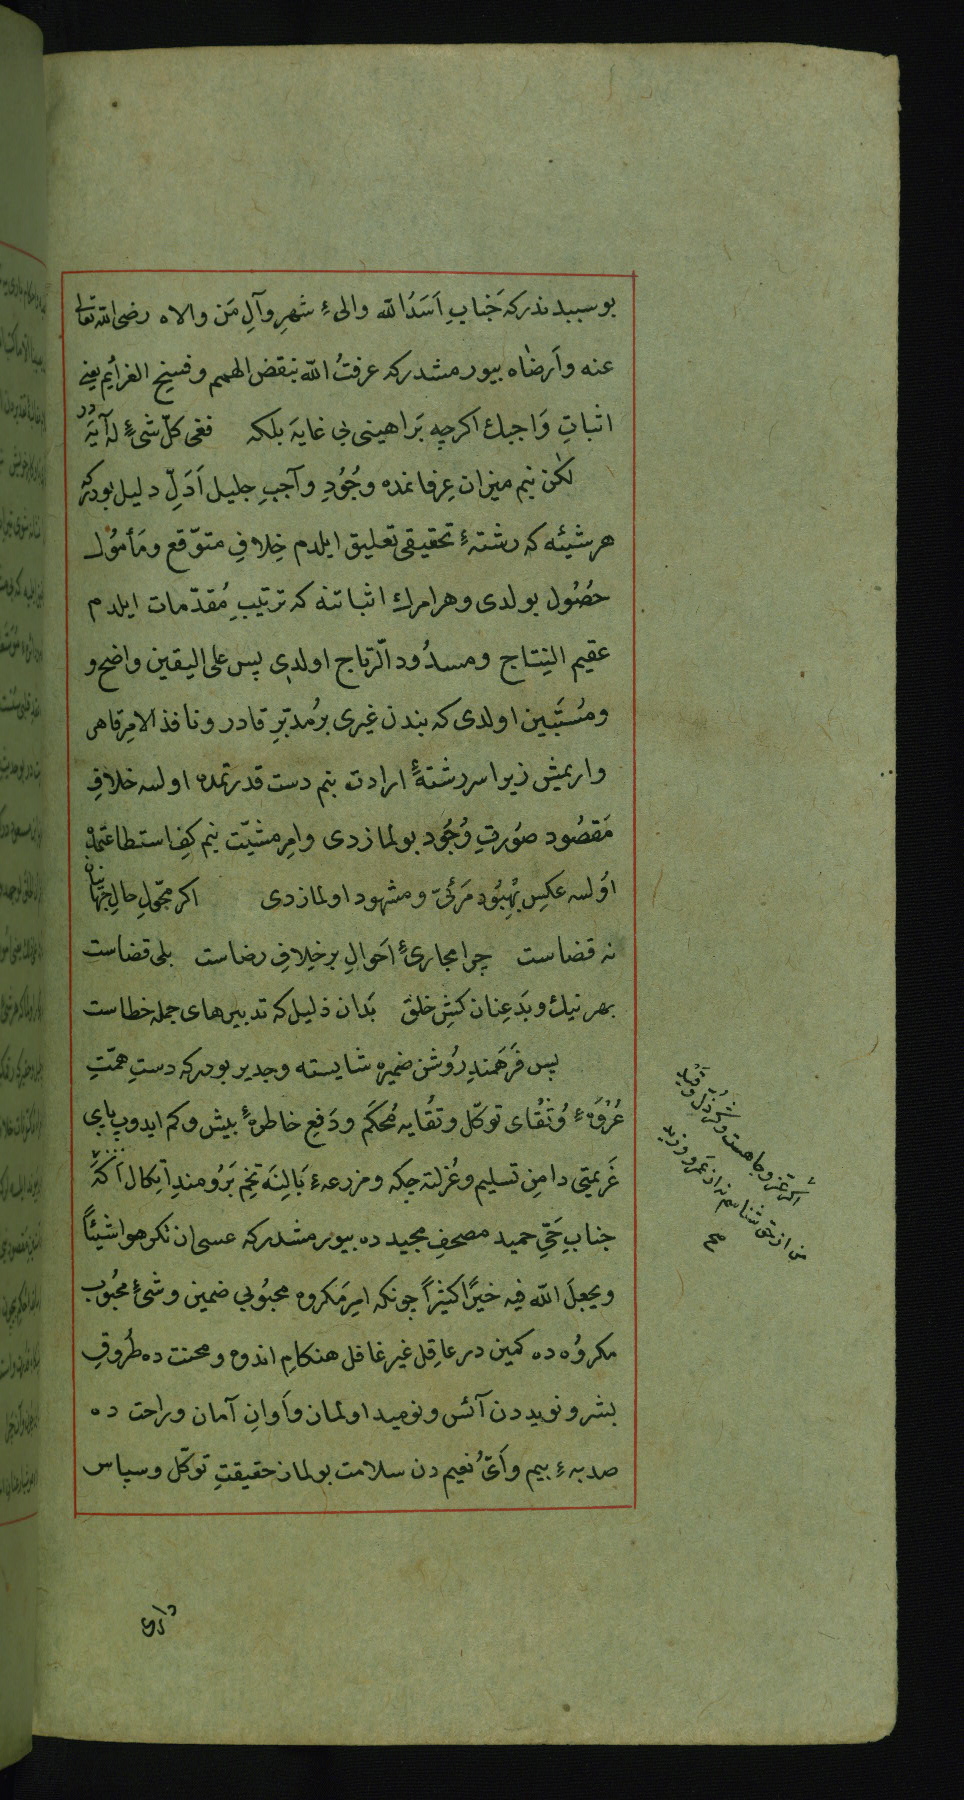 بو سببدندركه جَنابِ اَسَدُ الله والیء شهرِ وآلِ مَن والاه رضی الله تعالی
عنه وآرضاه بیورمشدركه عرفتُ الله بنقض الهمم وفسیخ العزایُم یعنی
اثباتِ وَاجبك اكرچه بَراهینی بی غایهَ بلكه ففی كلّ شیءٍ له آیَة در
لكن بنم میزان عِرفانمده وجُودِ وآجبِ جلیل اَدَلِّ دلیل بودركه
هر شیئه كه رشتهءٔ تحقیقی تعلیق ایلدم خِلافِ متوّقع ومَأمُول
حصُول بولدی وهر امرك اثباتنه كه ترتیبِ مُقدّمات ایلدم
عقیم النِتاج ومسدُود الّرتاج اولدی پس علی الیقین واضح و
ومُستَبین اولدی كه بندن غیری برُمدبّرِ قادر ونافذ الامرِ قاهر
واریمش زیرا سر رشتهءٔ ارادت بنم دست قدرتمده اولسه خلافِ
مَقصُود صوُرتِ وُجُود بولمازدی وامِر مشیّت بنم كفِ استطاعتمده
اوُلسه عكسِ بَهِبُود مَرئیّ ومشهود اولمازدی اكر محّولِ حالِ جهانیان
نه قضاست چرا مجاریءٔ اَحوالِ بر خِلافِ رضاست بلی قضاست
بهر نیك وبَد عِنان كشِ خلق بَدان ذلیل كه تدبیرهای جمله خطاست
پس فَرَهَمندِ رُوشن ضمیره شایسته وجدیر بودركه دستِ همّتِ
عُرْوَةءِ وُثْقُای توكّل وتقُایه مُحكَم ودَفعِ خاطرهءٔ بیش وكم ایدوپ پایِ
عَزیمتی دامِن تسلیم وعُزلته چكه ومزرعهءِ بَالِنَه تخِم بَرُومندِ اتِّكال اَكه
جنابِ حَیِّ حمید مصحفِ مجیدده بیورمشدركه عسی ان تكرهوا شیئاً
ویجعلَ الله فیه خیًرا كثیرًا چونكه امِر مَكروه محبُوبی ضمین وشیءٔ محبُوب
مكروُه ده كمین در عاقِل غیر غافل هنكامِ اندوه ومحنت ده طُروُقِ
بشر ونوید دن آئس ونومید اولمان وآوانِ آمان وراحت ده
صدبهءِ بیم وآیُّ نُعیم دن سلامت بولمان حقیقتِ توكّل وسپاس
اكر عّز وجاهست وكر ذُلّ وقَید
من از حق شناسم نه از عَمرو وزید
صح